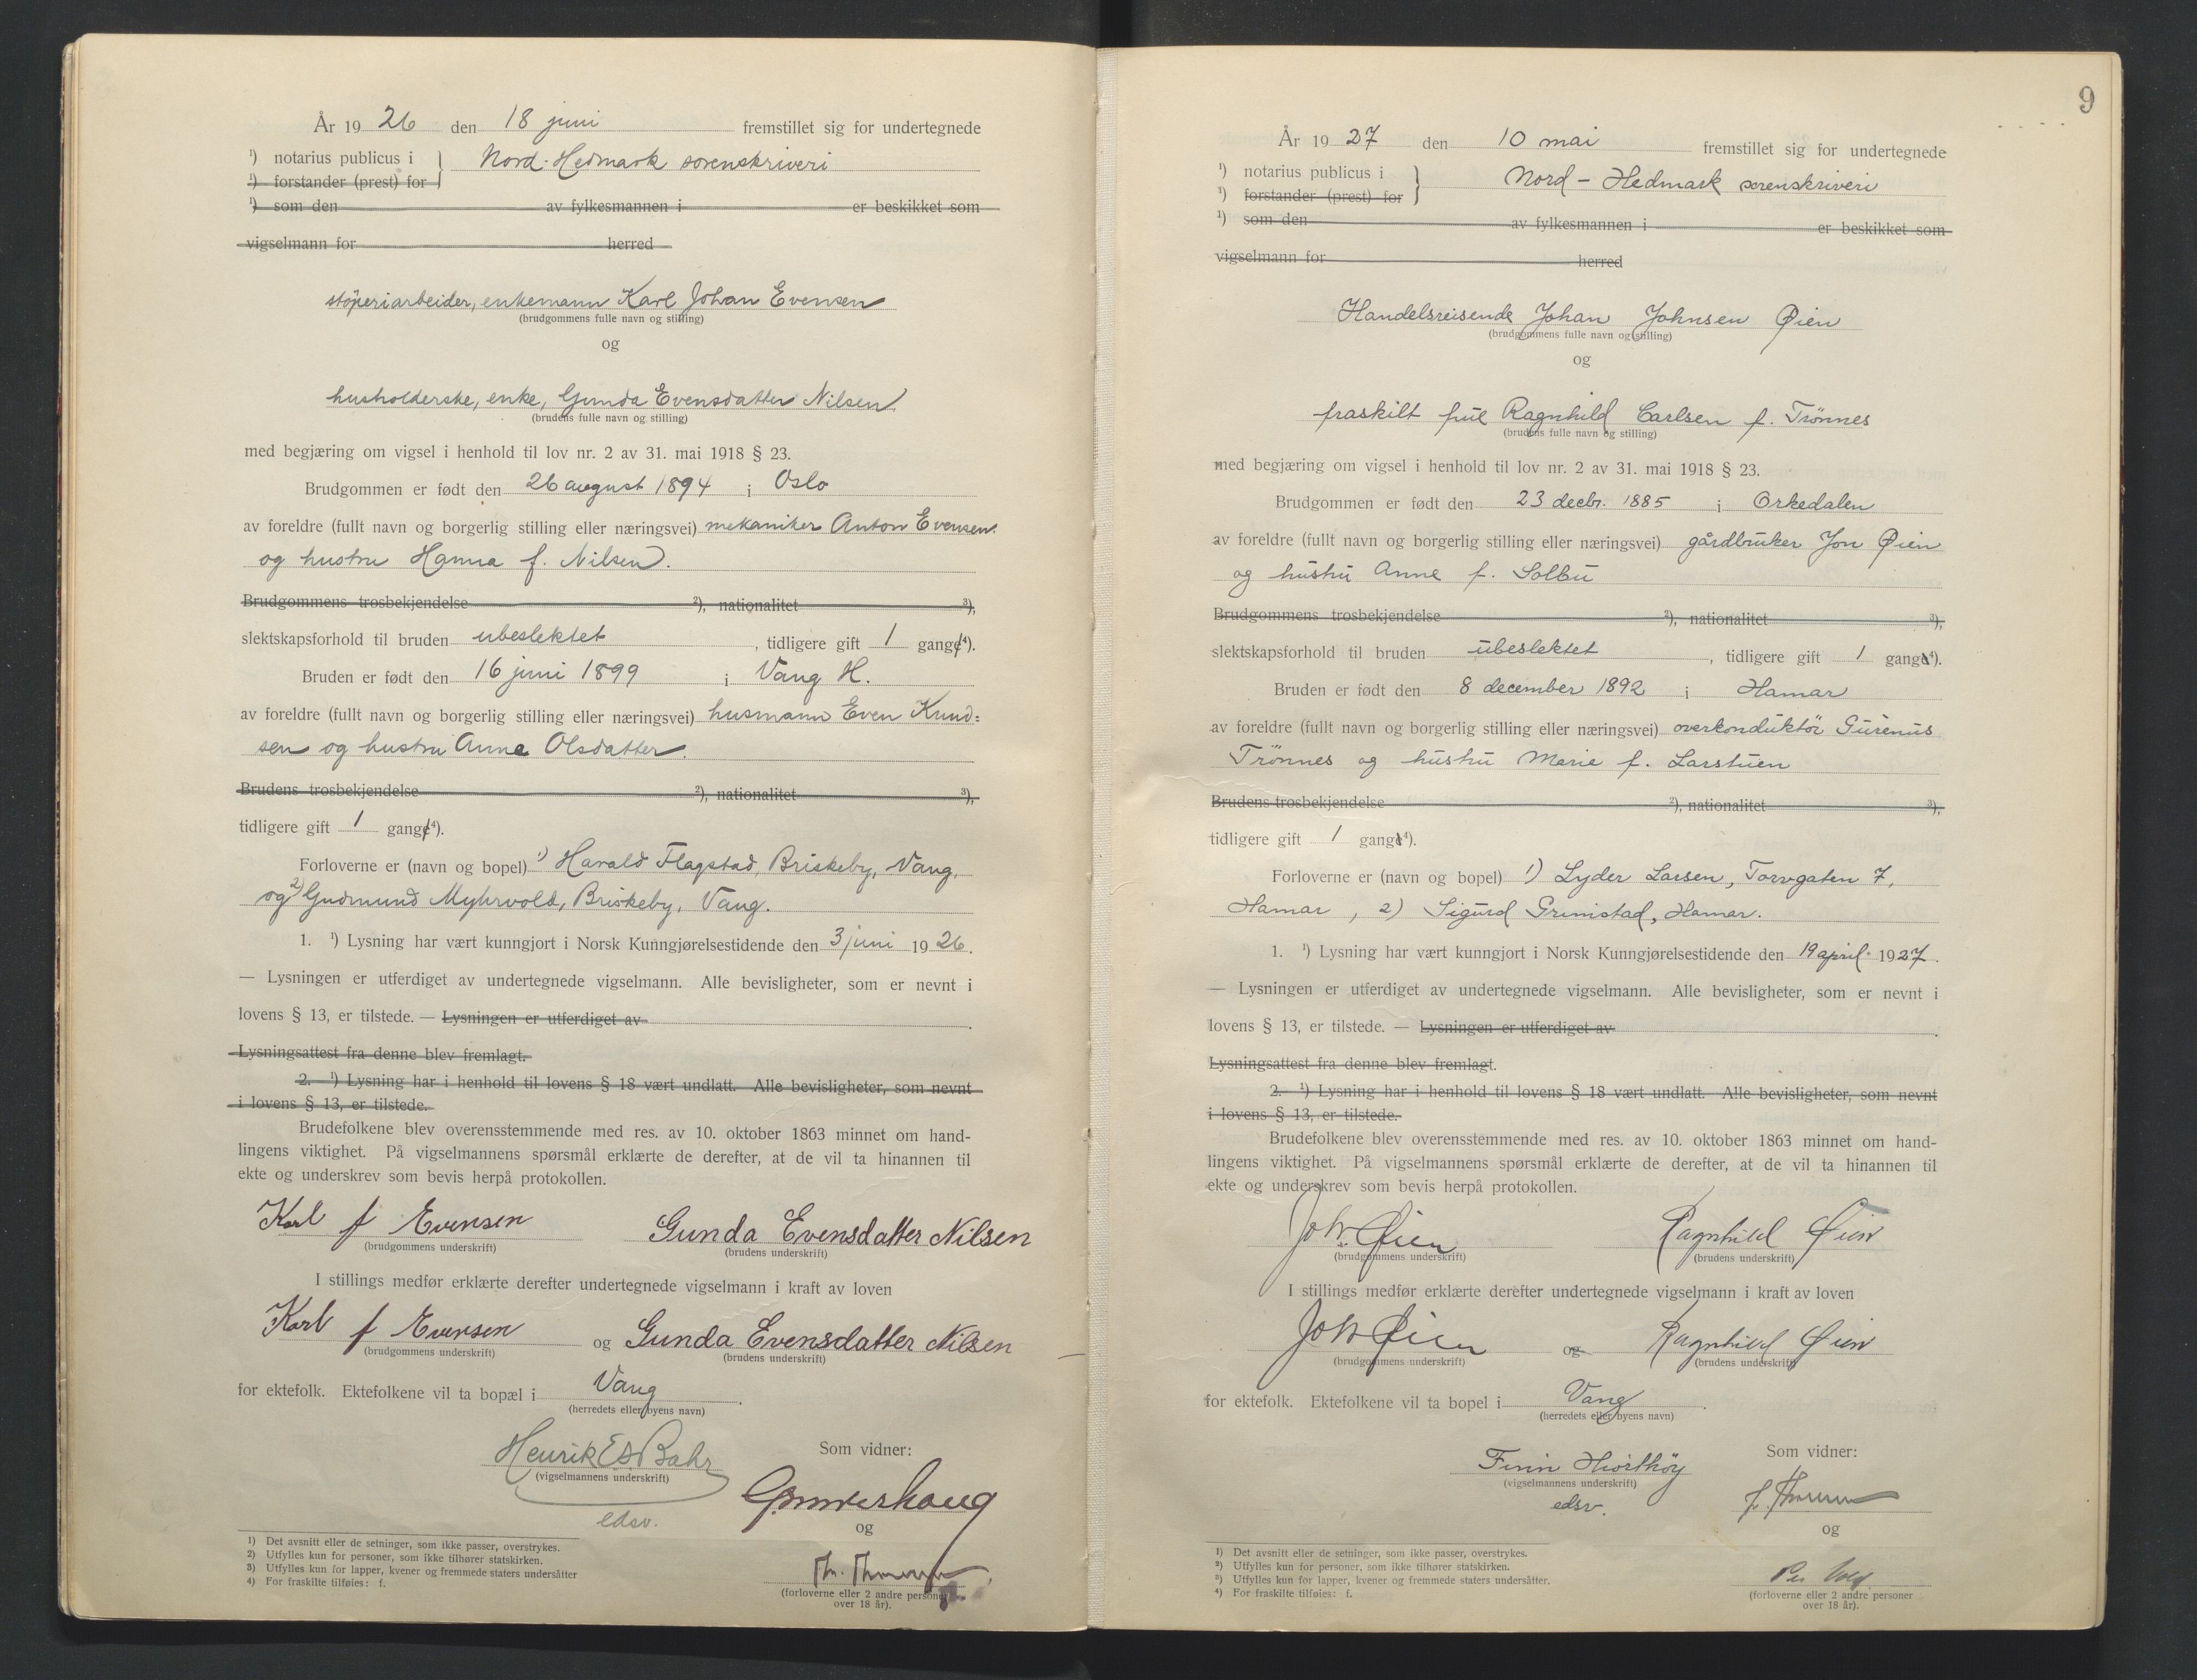 År 1926 den 18 juni fremstillet sig for undertegnede
¹) notarius publicus i } Nord-Hedmark sorenskriveri
¹) forstander (prest) for
¹) som den av fylkesmannen i er beskikket som
vigselmann for herred
støperiarbeider, enkemann Karl Johan Evensen
(brudgommens fulle navn og stilling)
og
husholderske, enke, Gunda Evensdatter Nilsen
(brudens fulle navn og stilling)
med begjæring om vigsel i henhold til lov nr. 2 av 31. mai 1918 § 23.
Brudgommen er født den 26 august 1894 i Oslo
av foreldre (fullt navn og borgerlig stilling eller næringsvei) mekaniker Anton Evensen
og hustru Hanna f. Nilsen.
Brudgommens trosbekjendelse ²), nationalitet ³),
slektskapsforhold til bruden ubeslektet, tidligere gift 1 gange⁴).
Bruden er født den 16 juni 1899 i Vang H.
av foreldre (fullt navn og borgerlig stilling eller næringsvei) husmann Even Knud=
sen og hustru Anne Olsdatter.
Brudens trosbekjendelse ²), nationalitet ³),
tidligere gift 1 gange⁴).
Forloverne er (navn og bopel) 1) Harald Flagstad, Briskeby, Vang,
og 2) Gudmund Myhrvold, Briskeby, Vang.
1. ¹) Lysning har vært kunngjort i Norsk Kunngjørelsestidende den 3 juni 1926.
— Lysningen er utferdiget av undertegnede vigselmann. Alle bevisligheter, som er nevnt i
lovens § 13, er tilstede. — Lysningen er utferdiget av .
Lysningsattest fra denne blev fremlagt.
2. ¹) Lysning har i henhold til lovens § 18 vært undlatt. Alle bevisligheter, som nevnt
i lovens § 13, er tilstede.
Brudefolkene blev overensstemmende med res. av 10. oktober 1863 minnet om hand-
lingens viktighet. På vigselmannens spørsmål erklærte de derefter, at de vil ta hinannen til
ekte og underskrev som bevis herpå protokollen.
Karl J Evensen Gunda Evensdatter Nilsen
(brudgommens underskrift) (brudens underskrift)
I stillings medfør erklærte derefter undertegnede vigselmann i kraft av loven
Karl J Evensen og Gunda Evensdatter Nilsen
(brudgommens underskrift) (brudens underskrift)
for ektefolk. Ektefolkene vil ta bopæl i Vang.
(herredets eller byens navn)
Henrik Bahr Som vidner:
(vigselmannens underskrift)
edsv.
og
(forloverne eller 2 andre personer
over 18 år).
1) Det avsnitt eller de setninger, som ikke passer, overstrykes.
2) Utfylles kun for personer, som ikke tilhører statskirken.
3) Utfylles kun for lapper, kvener og fremmede staters undersåtter
4) For fraskilte tilføies: f.
9
År 1927 den 10 mai fremstillet sig for undertegnede
¹) notarius publicus i } Nord-Hedmark sorenskriveri
¹) forstander (prest) for
¹) som den av fylkesmannen i er beskikket som
vigselmann for herred
Handelsreisende Johan Johnsen Øien
(brudgommens fulle navn og stilling)
og
fraskilt frue Ragnhild Carlsen f. Trönnes
(brudens fulle navn og stilling)
med begjæring om vigsel i henhold til lov nr. 2 av 31. mai 1918 § 23.
Brudgommen er født den 23 decbr. 1885 i Orkedalen
av foreldre (fullt navn og borgerlig stilling eller næringsvei) gårdbruker Jon Øien
og hustru Anne f. Solbu
Brudgommens trosbekjendelse ²), nationalitet ³),
slektskapsforhold til bruden ubeslektet, tidligere gift 1 gange⁴).
Bruden er født den 8 december 1892 i Hamar
av foreldre (fullt navn og borgerlig stilling eller næringsvei) overkonduktör Gurenus
Trönnes og hustru Marie f. Larstuen
Brudens trosbekjendelse ²), nationalitet ³),
tidligere gift 1 gange⁴).
Forloverne er (navn og bopel) 1) Lyder Larsen, Torvgaten 7,
Hamar, 2) Sigurd Grimstad, Hamar.
1. ¹) Lysning har vært kunngjort i Norsk Kunngjørelsestidende den 19 april 1927.
— Lysningen er utferdiget av undertegnede vigselmann. Alle bevisligheter, som er nevnt i
lovens § 13, er tilstede. — Lysningen er utferdiget av .
Lysningsattest fra denne blev fremlagt.
2. ¹) Lysning har i henhold til lovens § 18 vært undlatt. Alle bevisligheter, som nevnt
i lovens § 13, er tilstede.
Brudefolkene blev overensstemmende med res. av 10. oktober 1863 minnet om hand-
lingens viktighet. På vigselmannens spørsmål erklærte de derefter, at de vil ta hinannen til
ekte og underskrev som bevis herpå protokollen.
Joh. Øien Ragnhild Øien
(brudgommens underskrift) (brudens underskrift)
I stillings medfør erklærte derefter undertegnede vigselmann i kraft av loven
Joh Øien og Ragnhild Øien
(brudgommens underskrift) (brudens underskrift)
for ektefolk. Ektefolkene vil ta bopel i Vang.
(herredets eller byens navn)
Finn Hiorthöy Som vidner:
(vigselmannens underskrift)
edsv.
og
(forloverne eller 2 andre personer
over 18 år).
1) Det avsnitt eller de setninger, som ikke passer, overstrykes.
2) Utfylles kun for personer, som ikke tilhører statskirken.
3) Utfylles kun for lapper, kvener og fremmede staters undersåtter.
4) For fraskilte tilføies: f.